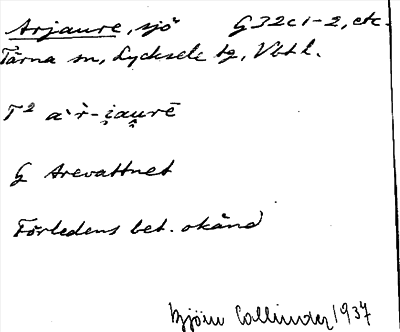 Arjaure, sjö G32c1-2, etc.
Tärna sn, Lycksele lg, Vbtl.
T² a`r̀-i̯au̯rē
G Arevattnet
Förledens bet. okänd
Björn Collinder 1937